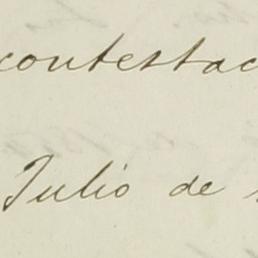 contestac
Julio de